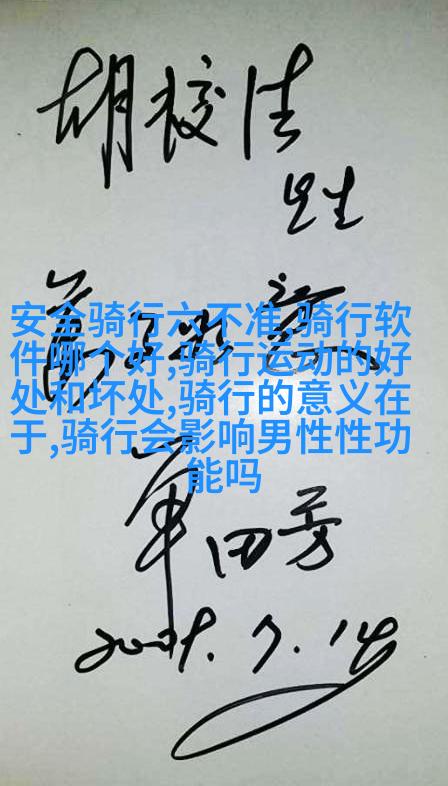 胡校法
先生
安全骑行六不准,骑行软
件哪个好,骑行运动的好
处和坏处,骑行的意义在
于,骑行会影响男性性功
能吗
单田芳